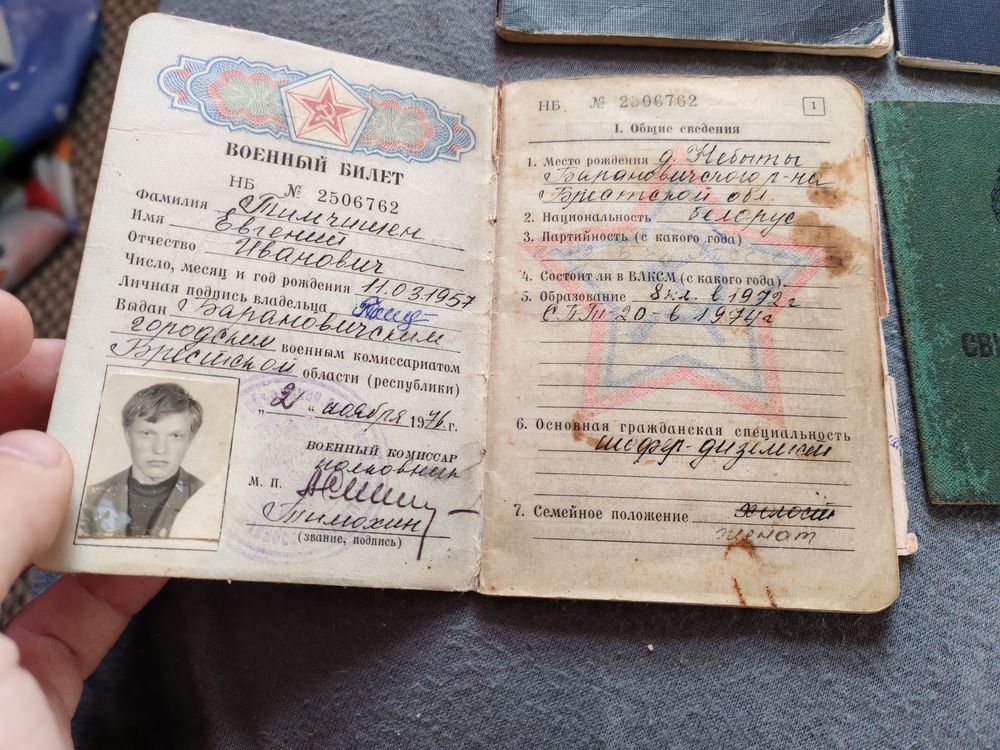 ВОЕННЫЙ БИЛЕТ
НБ № 2506762
Фамилия Тимчишен
Имя Евгений
Отчество Иванович
Число, месяц и год рождения 11.03.1957
Личная подпись владельца
Выдан Барановичским
городским военным комиссариатом
Брестской области (республики)
„ 2 “ ноября 1976 г.
ВОЕННЫЙ КОМИССАР
полковник
М. П.
Тимохин
(звание, подпись)
НБ № 2506762
1
I. Общие сведения
1. Место рождения д. Небыты
Барановичского р-на
Брестской обл.
2. Национальность белорус
3. Партийность (с какого года)
4. Состоит ли в ВЛКСМ (с какого года)
5. Образование 8 кл. в 1972 г
СПТУ-20-в 1974 г
6. Основная гражданская специальность
шофер-дизелист
7. Семейное положение холост
женат
СВИ